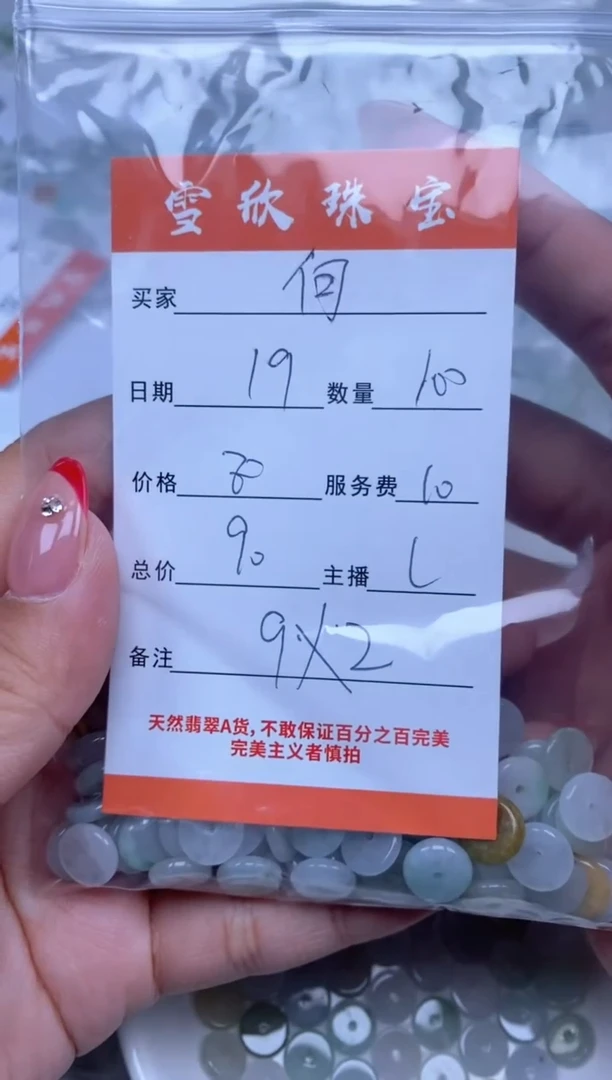 雪欣珠宝
买家 何
日期 19 数量 100
价格 80 服务费 10
总价 90 主播 L
备注 9X2
天然翡翠A货,不敢保证百分之百完美
完美主义者慎拍